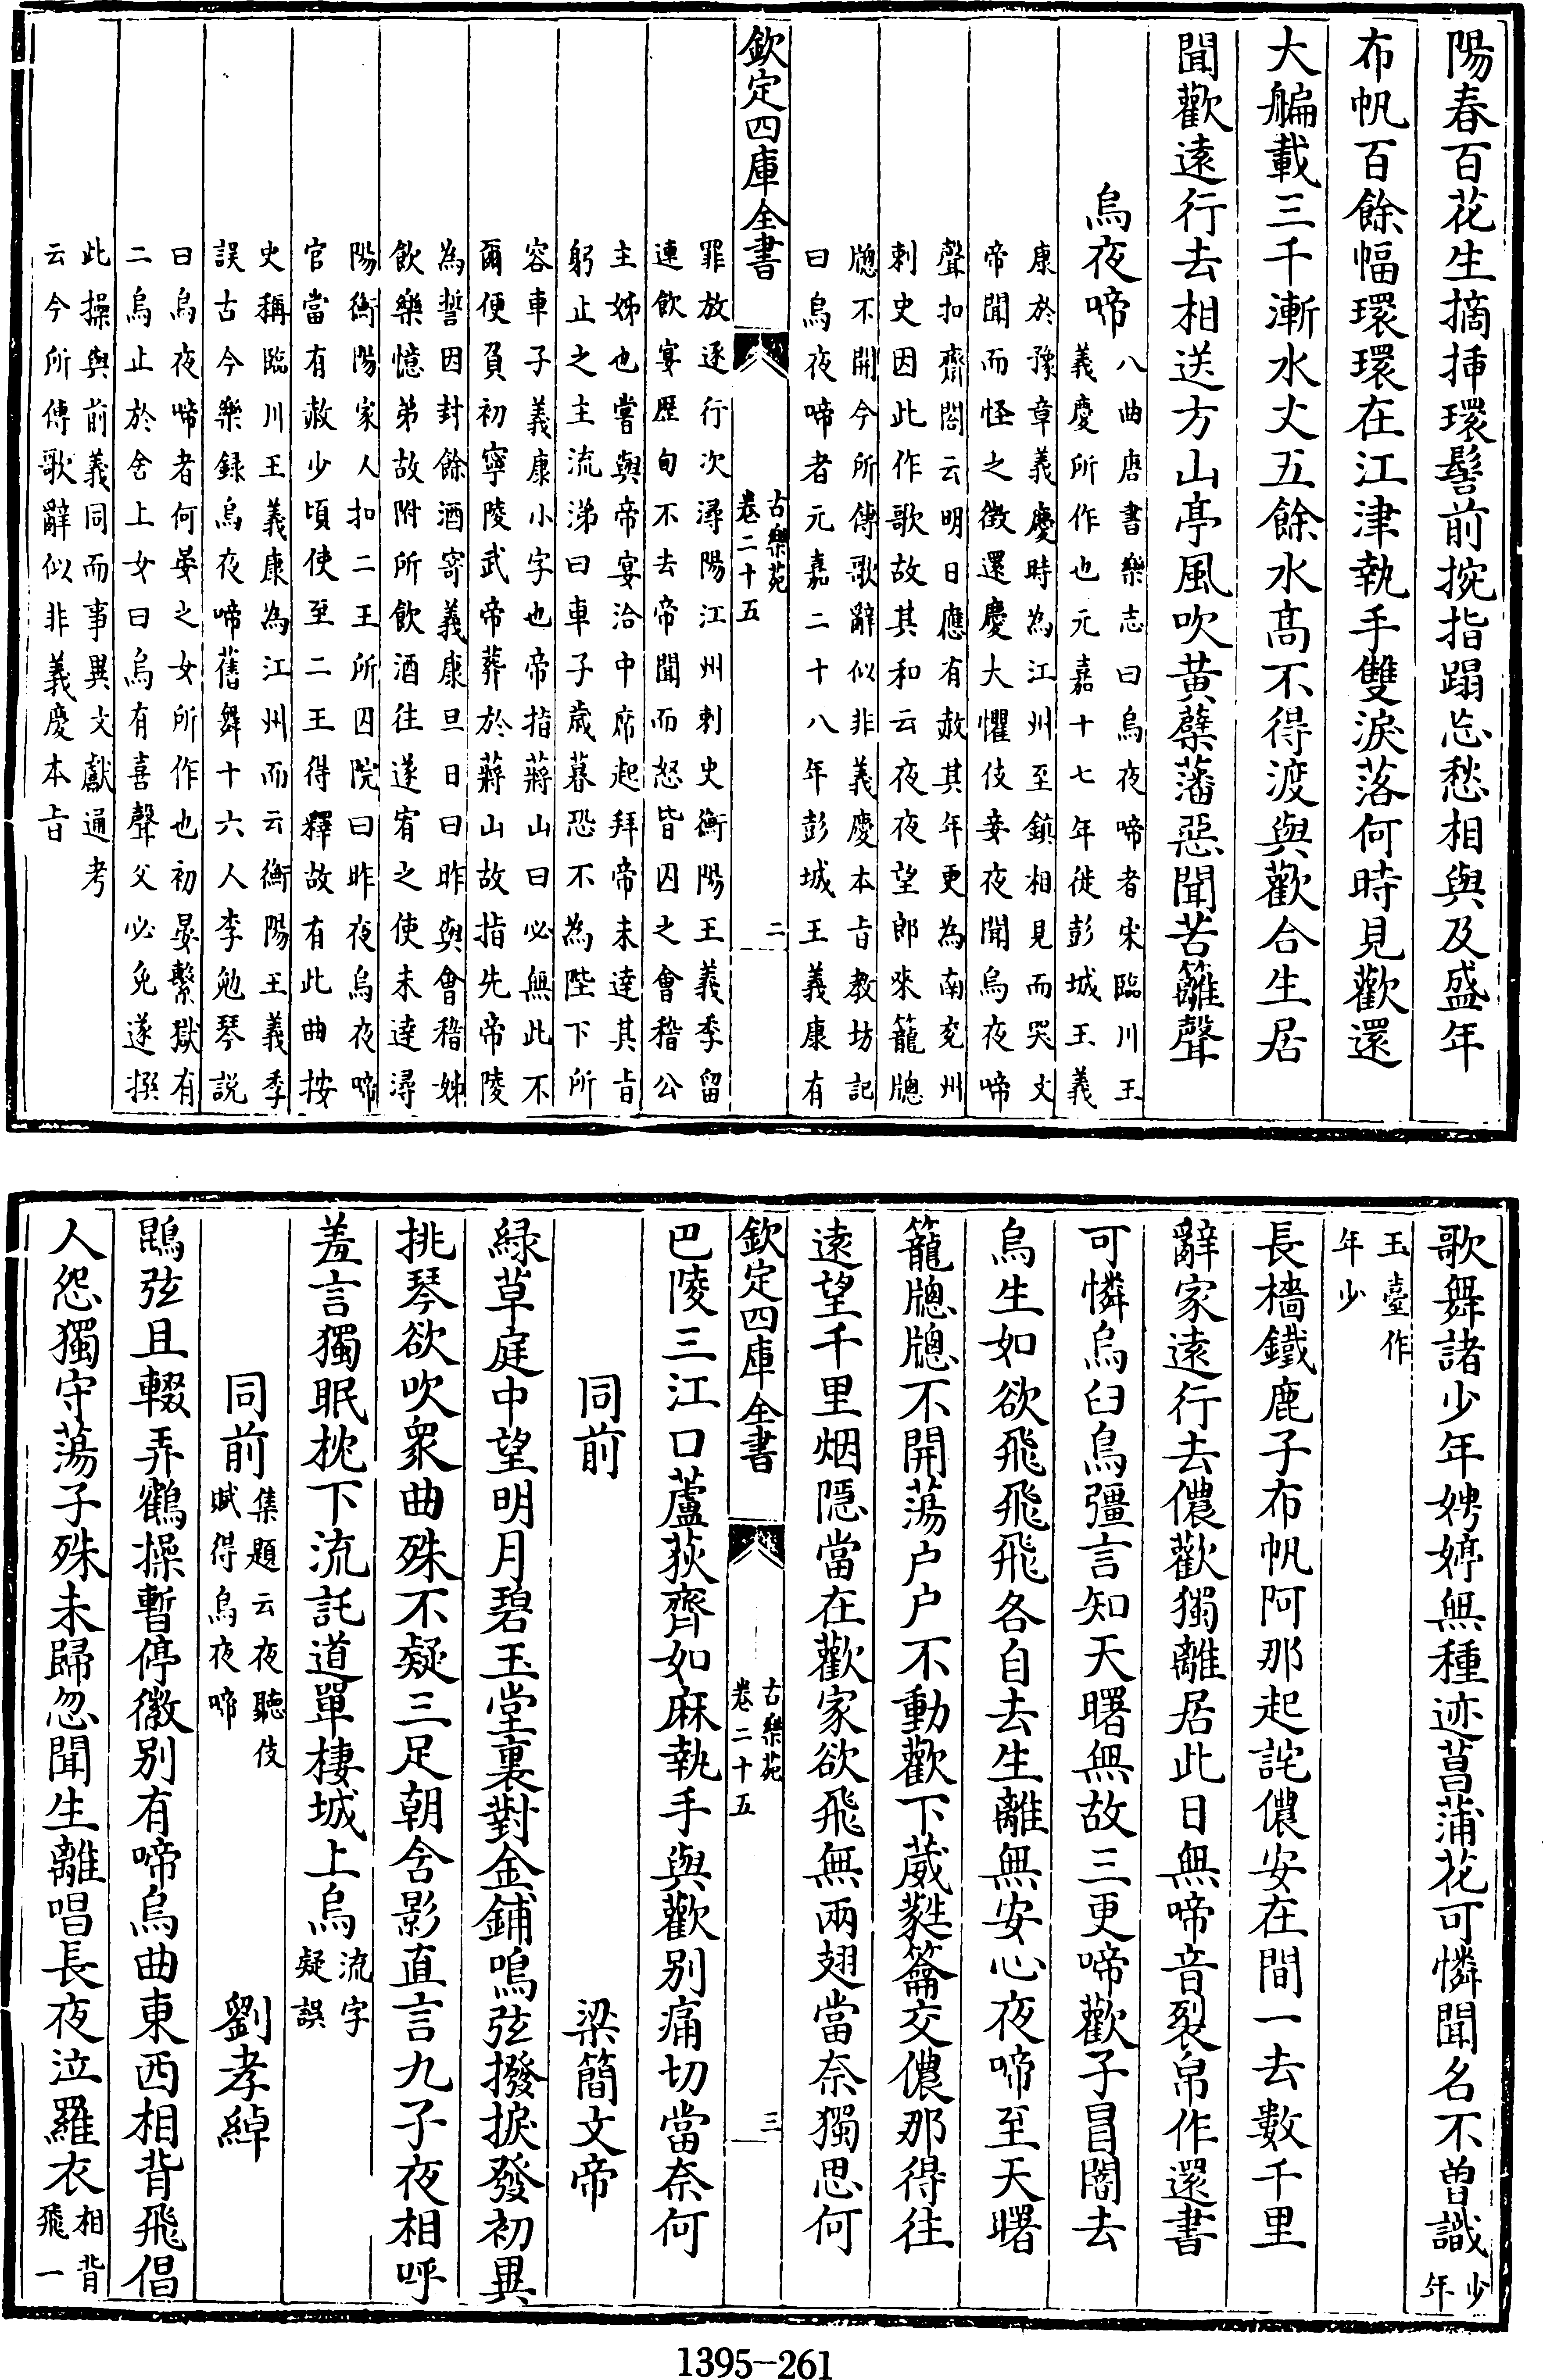 陽春百花生摘揷環髻前捥指蹋忘愁相與及盛年
布帆百餘幅環環在江津執手雙淚落何時見歡還
大艑載三千漸水丈五餘水高不得渡與歡合生居
聞歡遠行去相送方山亭風吹黃蘗藩惡聞苦籬聲
烏夜啼
八曲唐書樂志曰烏夜啼者宋臨川王
義慶所作也元嘉十七年徙彭城王義
康於豫章義慶時為江州至鎮相見而哭文
帝聞而怪之徵還慶大懼伎妾夜聞烏夜啼
聲扣齋閤云明日應有赦其年更為南兖州
刺史因此作歌故其和云夜夜望郎來籠牕
牕不開今所傳歌辭似非義慶本旨教坊記
曰烏夜啼者元嘉二十八年彭城王義康有
欽定四庫全書
古樂苑
卷二十五
二
罪放逐行次潯陽江州刺史衡陽王義季留
連飲宴歴旬不去帝聞而怒皆囚之會稽公
主姊也嘗與帝宴洽中席起拜帝未達其旨
躬止之主流涕曰車子歲暮恐不為陛下所
容車子義康小字也帝指蔣山曰必無此不
爾便負初寧陵武帝葬於蔣山故指先帝陵
為誓因封餘酒寄義康旦日曰昨與會稽姊
飲樂憶弟故附所飲酒往遂宥之使未達潯
陽衡陽家人扣二王所囚院曰昨夜烏夜啼
官當有赦少頃使至二王得釋故有此曲按
史稱臨川王義康為江州而云衡陽王義季
誤古今樂録烏夜啼舊舞十六人李勉琴説
曰烏夜啼者何晏之女所作也初晏繫獄有
二烏止於舍上女曰烏有喜聲父必免遂撰
此操與前義同而事異文獻通考
云今所傳歌辭似非義慶本旨
歌舞諸少年娉婷無種迹菖蒲花可憐聞名不曽識
少
年
玉臺作
年少
長檣鐵鹿子布帆阿那起詫儂安在間一去數千里
辭家遠行去儂歡獨離居此日無啼音裂帛作還書
可憐烏臼鳥彊言知天曙無故三更啼歡子冒闇去
烏生如欲飛飛飛各自去生離無安心夜啼至天曙
籠牕牕不開蕩户户不動歡下葳蕤籥交儂那得往
遠望千里烟隱當在歡家欲飛無兩翅當奈獨思何
欽定四庫全書
古樂苑
卷二十五
三
巴陵三江口蘆荻齊如麻執手與歡别痛切當奈何
同前
梁簡文帝
緑草庭中望明月碧玉堂裏對金鋪鳴弦撥捩發初異
挑琴欲吹衆曲殊不疑三足朝含影直言九子夜相呼
羞言獨眠枕下流託道單棲城上烏
流字
疑誤
同前
集題云夜聽伎
賦得烏夜啼
劉孝綽
鵾弦且輟弄鶴操暫停徽别有啼烏曲東西相背飛倡
人怨獨守蕩子殊未歸忽聞生離唱長夜泣羅衣
相背
飛一
1395-261